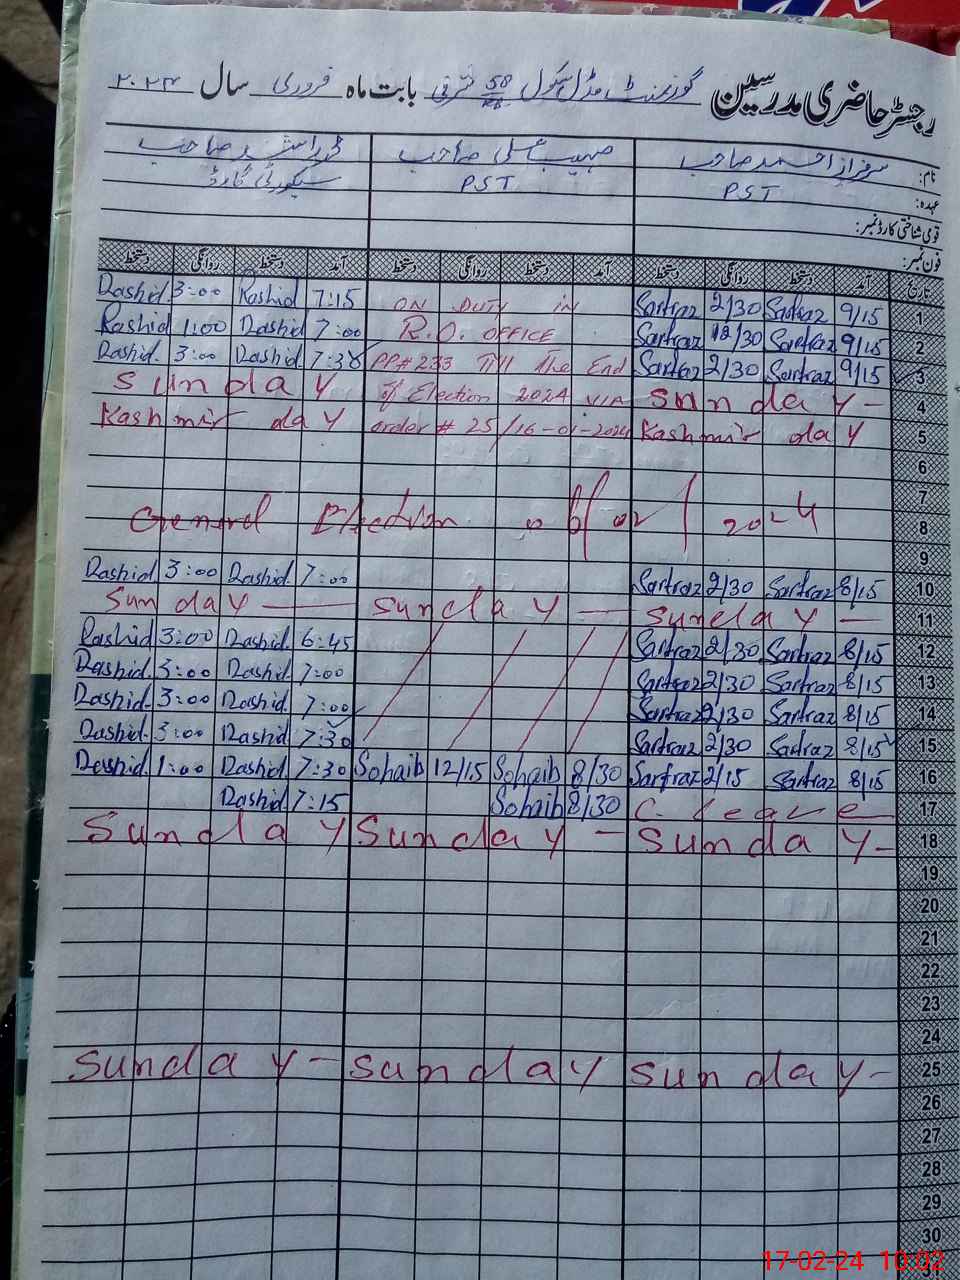 رجسٹر حاضری مدرسین گورنمنٹ مڈل سکول 58 شرقی بابت ماہ فروری سال ۲۰۲۴
نام: سرفراز احمد صاحب صہیب علی صاحب محمد راشد صاحب
عہدہ: PST PST سیکورٹی گارڈ
قومی شناختی کارڈ نمبر:
فون نمبر:
تاریخ آمد دستخط روانگی دستخط آمد دستخط روانگی دستخط آمد دستخط روانگی دستخط
Rashid 3:00 Rashid 7:15 ON DUTY IN Sarfraz 2/30 Sarfraz 9/15 1
Rashid 1:00 Rashid 7:00 R.O. OFFICE Sarfraz 12/30 Sarfraz 9/15 2
Rashid 3:00 Rashid 7:38 PP#233 Till the End Sarfraz 2/30 Sarfraz 9/15 3
Sunday of Election 2024 VIA Sunday- 4
Kashmir day order # 25/16-01-2024 Kashmir day 5
6
7
General Election 02 2024 8
9
Rashid 3:00 Rashid 7:00 Sarfraz 2/30 Sarfraz 8/15 10
Sunday — Sunday — Sunday — 11
Rashid 3:00 Rashid 6:45 Sarfraz 2/30 Sarfraz 8/15 12
Rashid 3:00 Rashid 7:00 Sarfraz 2/30 Sarfraz 8/15 13
Rashid 3:00 Rashid 7:00 Sarfraz 2/30 Sarfraz 8/15 14
Rashid 3:00 Rashid 7:30 Sarfraz 2/30 Sarfraz 8/15 15
Rashid 1:00 Rashid 7:30 Sohaib 12/15 Sohaib 8/30 Sarfraz 2/15 Sarfraz 8/15 16
Rashid 7:15 Sohaib 8/30 C. leave 17
Sunday Sunday - Sunday - 18
19
20
21
22
23
24
Sunday - Sunday Sunday - 25
26
27
28
29
30
31
17-02-24 10:02